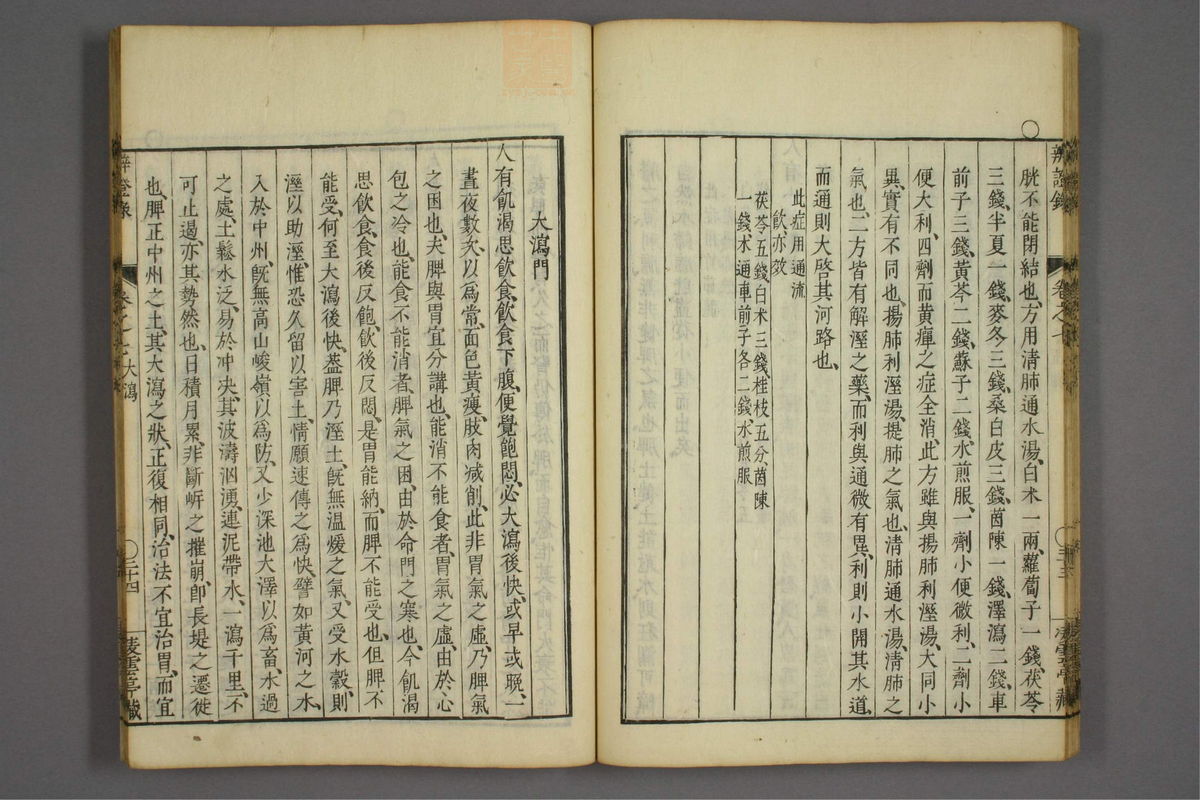 胱不能閉結也、方用清肺通水湯、白朮一兩、蘿蔔子一錢、茯苓
三錢、半夏一錢、麥冬三錢、桑白皮三錢、茵陳一錢、澤瀉二錢、車
前子三錢、黃芩二錢、蘇子二錢、水煎服、一劑小便微利、二劑小
便大利、四劑而黃癉之症全消、此方雖與揚肺利溼湯、大同小
異、實有不同也、揚肺利溼湯、提肺之氣也、清肺通水湯、清肺之
氣也、二方皆有解溼之藥、而利與通微有異、利則小開其水道、
而通則大啓其河路也、
此症用通流
飲亦效
茯苓五錢白朮三錢桂枝五分茵陳
一錢木通車前子各二錢水煎服
辨證錄
卷之七
大瀉門
人有飢渴思飲食、飲食下腹、便覺飽悶、必大瀉後快、或早或晚、一
晝夜數次、以爲常、面色黃瘦、肢肉減削、此非胃氣之虛、乃脾氣
之困也、夫脾與胃宜分講也、能消不能食者、胃氣之虛、由於心
包之冷也、能食不能消者、脾氣之困、由於命門之寒也、今飢渴
思飲食、食後反飽、飲後反悶、是胃能納、而脾不能受也、但脾不
能受、何至大瀉後快、葢脾乃溼土、旣無溫煖之氣、又受水穀、則
溼以助溼、惟恐久留以害土、情願速傳之爲快、譬如黃河之水、
入於中州、旣無高山峻嶺以爲防、又少深池大澤以爲畜、水過
之處、土鬆水泛、易於冲決、其波濤汹湧、連泥帶水、一瀉千里、不
可止遏、亦其勢然也、日積月累、非斷岍之摧崩、卽長堤之遷徙
也、脾正中州之土、其大瀉之狀、正復相同、治法不宜治胃、而宜
大瀉
三十四